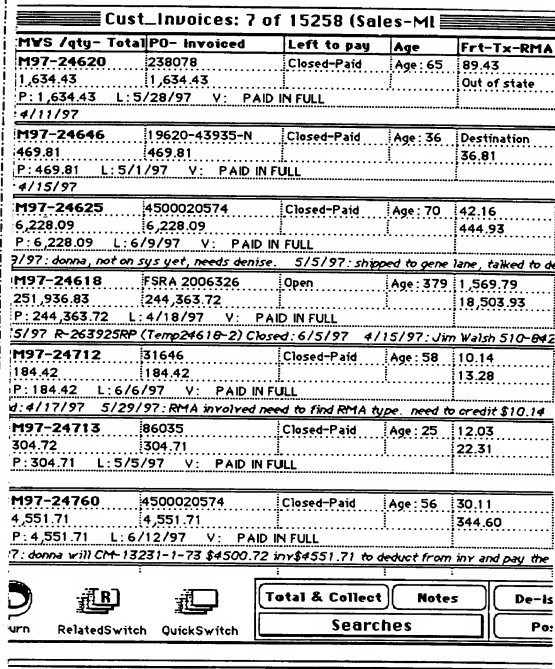 Cust_Invoices: 7 of 15258 (Sales-ML
MWS /qty- Total PO- Invoiced Left to pay Age Frt-Tx-RMA
M97-24620 238078 Closed-Paid Age: 65 89.43
1,634.43 1,634.43 Out of state
P: 1,634.43 L: 5/28/97 V: PAID IN FULL
4/11/97
M97-24646 19620-43935-N Closed-Paid Age: 36 Destination
469.81 469.81 36.81
P: 469.81 L: 5/1/97 V: PAID IN FULL
4/15/97
M97-24625 4500020574 Closed-Paid Age: 70 42.16
6,228.09 6,228.09 444.93
P: 6,228.09 L: 6/9/97 V: PAID IN FULL
9/97: donna, not on sys yet, needs denise. 5/5/97: shipped to gene lane, talked to de
M97-24618 FSRA 2006326 Open Age: 379 1,569.79
251,936.83 244,363.72 18,503.93
P: 244,363.72 L: 4/18/97 V: PAID IN FULL
5/97 R-263925RP (Temp24618-2) Closed: 6/5/97 4/15/97: Jim Walsh 510-842
M97-24712 31646 Closed-Paid Age: 58 10.14
184.42 184.42 13.28
P: 184.42 L: 6/6/97 V: PAID IN FULL
d: 4/17/97 5/29/97: RMA involved need to find RMA type. need to credit $10.14
M97-24713 86035 Closed-Paid Age: 25 12.03
304.72 304.71 22.31
P: 304.71 L: 5/5/97 V: PAID IN FULL
M97-24760 4500020574 Closed-Paid Age: 56 30.11
4,551.71 4,551.71 344.60
P: 4,551.71 L: 6/12/97 V: PAID IN FULL
7: donna will CM-13231-1-73 $4500.72 inv$4551.71 to deduct from inv and pay the
R Total & Collect Notes De-is
urn RelatedSwitch QuickSwitch Searches Po: